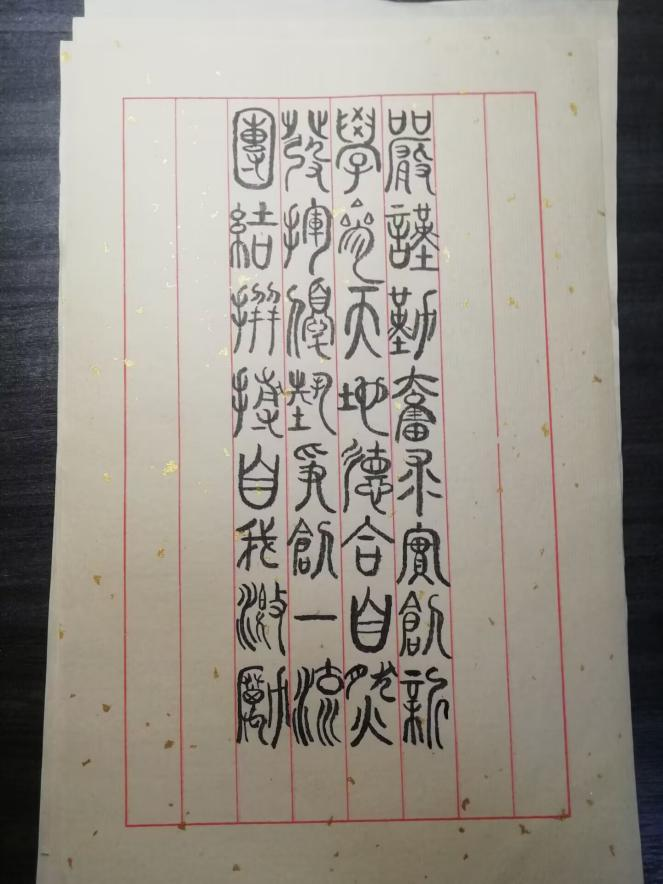 嚴謹勤奮求實創新
學參天地德合自然
發揮優勢爭創一流
團結拼搏自我激勵